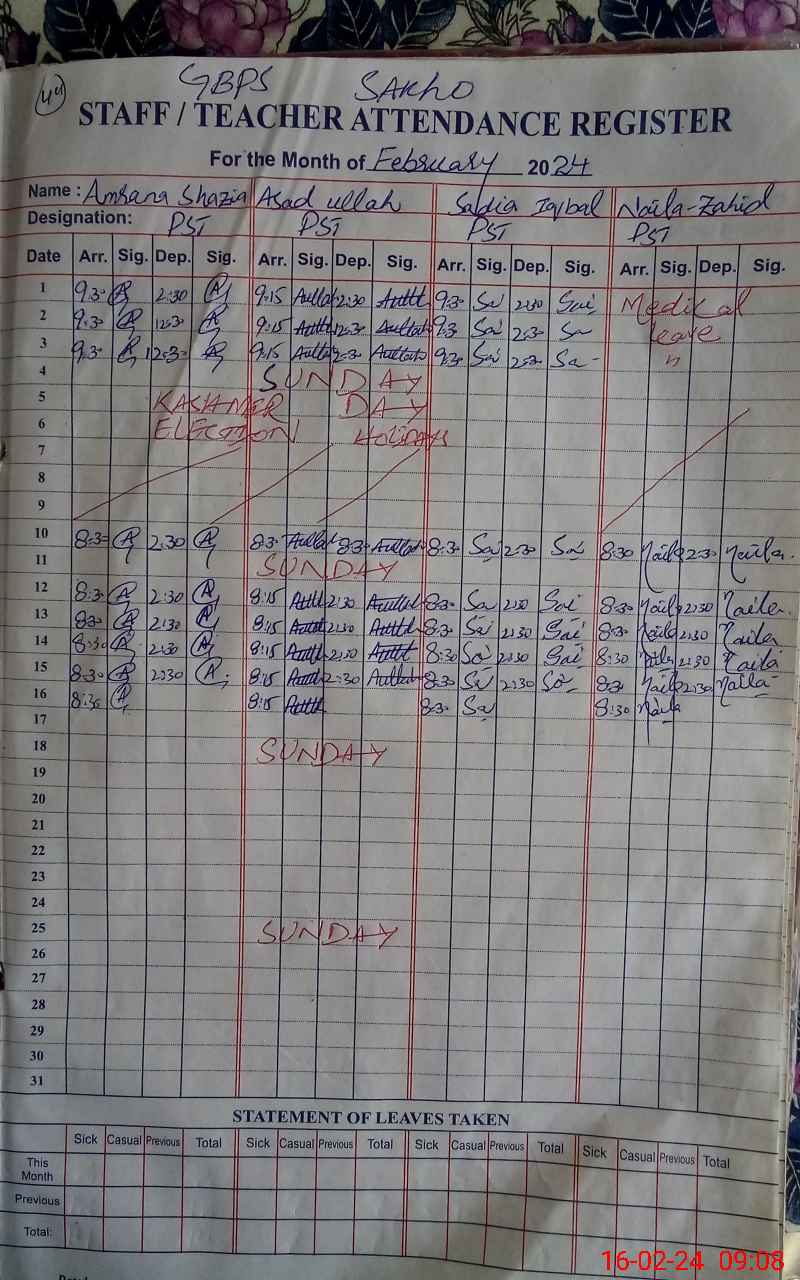 44
GBPS SAKHO
STAFF / TEACHER ATTENDANCE REGISTER
For the Month of February 2024
Name : Amrana Shazia Asad ullah Sadia Iqbal Naila-Zahid
Designation: PST PST PST PST
Date Arr. Sig. Dep. Sig. Arr. Sig. Dep. Sig. Arr. Sig. Dep. Sig. Arr. Sig. Dep. Sig.
1 9:30 2:30 9:15 2:30 9:30 Sa 2:30 Sai Medikal
2 9:30 12:30 9:15 12:30 9:30 Sai 2:30 Sa leave
3 9:30 12:30 9:15 2:30 9:30 Sai 2:30 Sa "
4 SUNDAY
5 KASHMER DAY
6 ELECTION HOLIDAYS
7
8
9
10 8:30 2:30 8:30 8:30 8:30 Sa 2:30 Sa 8:30 Naila 2:30 Naila
11 SUNDAY
12 8:30 2:30 8:15 2:30 8:30 Sa 2:30 Sai 8:30 Naila 2:30 Naila
13 8:30 2:30 8:15 2:30 8:30 Sai 2:30 Sai 8:30 Naila 2:30 Naila
14 8:30 2:30 8:15 2:30 8:30 Sa 2:30 Sai 8:30 Naila 2:30 Naila
15 8:30 2:30 8:15 2:30 8:30 Sa 2:30 Sa 8:30 Naila 2:30 Naila
16 8:30 8:15 8:30 Sa 8:30 Naila
17
18 SUNDAY
19
20
21
22
23
24
25 SUNDAY
26
27
28
29
30
31
STATEMENT OF LEAVES TAKEN
Sick Casual Previous Total Sick Casual Previous Total Sick Casual Previous Total Sick Casual Previous Total
This
Month
Previous
Total:
16-02-24 09:08